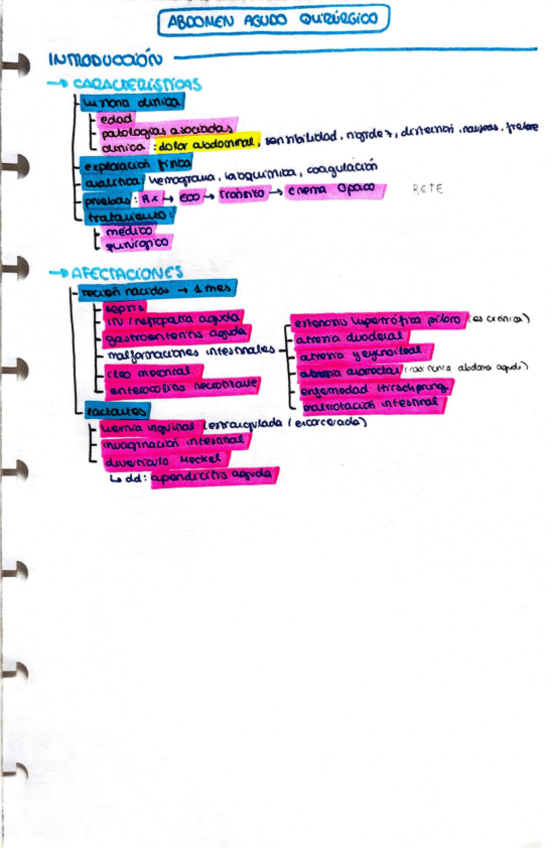 ABDOMEN AGUDO QUIRÚRGICO
INTRODUCCIÓN
→ CARACTERÍSTICAS
historia clínica
edad
patologías asociadas
clínica: dolor abdominal, sensibilidad, rigidez, distensión, náuseas, fiebre
exploración física
analítica: hemograma, iabquímica, coagulación
pruebas: Rx → ECO → tránsito → enema opaco RETE
tratamiento:
médico
quirúrgico
→ AFECTACIONES
recién nacidos → 1 mes
sepsis
ITU / nefropatía aguda
gastroenteritis aguda
malformaciones intestinales
estenosis hipertrófica píloro (es crónica)
atresia duodenal
atresia yeyunoileal
atresia anorectal (casi nunca abdomen agudo)
enfermedad Hirschprung
malrotación intestinal
íleo meconial
enterocolitis necrotizante
lactantes
hernia inguinal (estrangulada / encarcerada)
invaginación intestinal
divertículo Meckel
↳ dd: apendicitis aguda